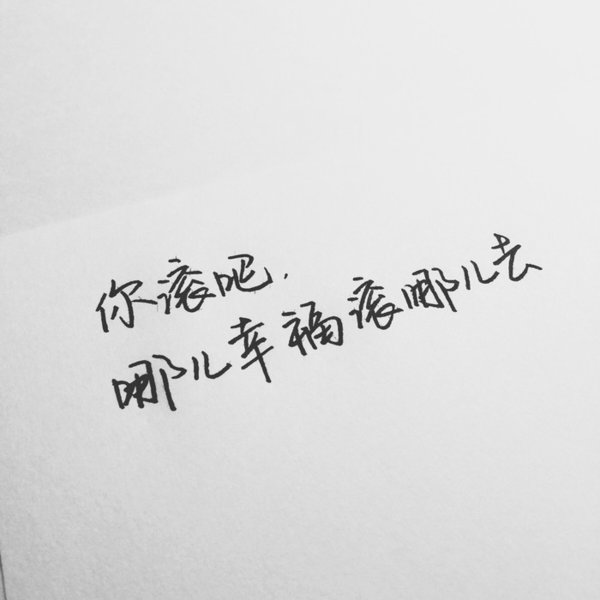 你滚吧.
哪儿幸福滚哪儿去